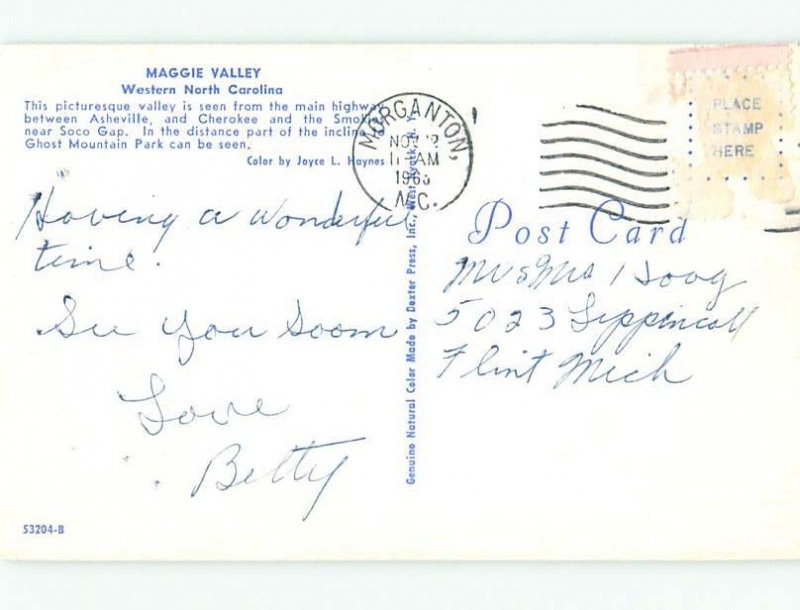 MAGGIE VALLEY
Western North Carolina
This picturesque valley is seen from the main highway
between Asheville, and Cherokee and the Smokies
near Soco Gap. In the distance part of the incline to
Ghost Mountain Park can be seen.
Color by Joyce L. Haynes
MORGANTON,
NOV
AM
N.C.
PLACE
STAMP
HERE
Having a wonderful
time.
See you soon
Love
Betty
Genuine Natural Color Made by Dexter Press, Inc., West Nyack, N. Y.
Post Card
5023 Lippincott
Flint Mich
53204-B